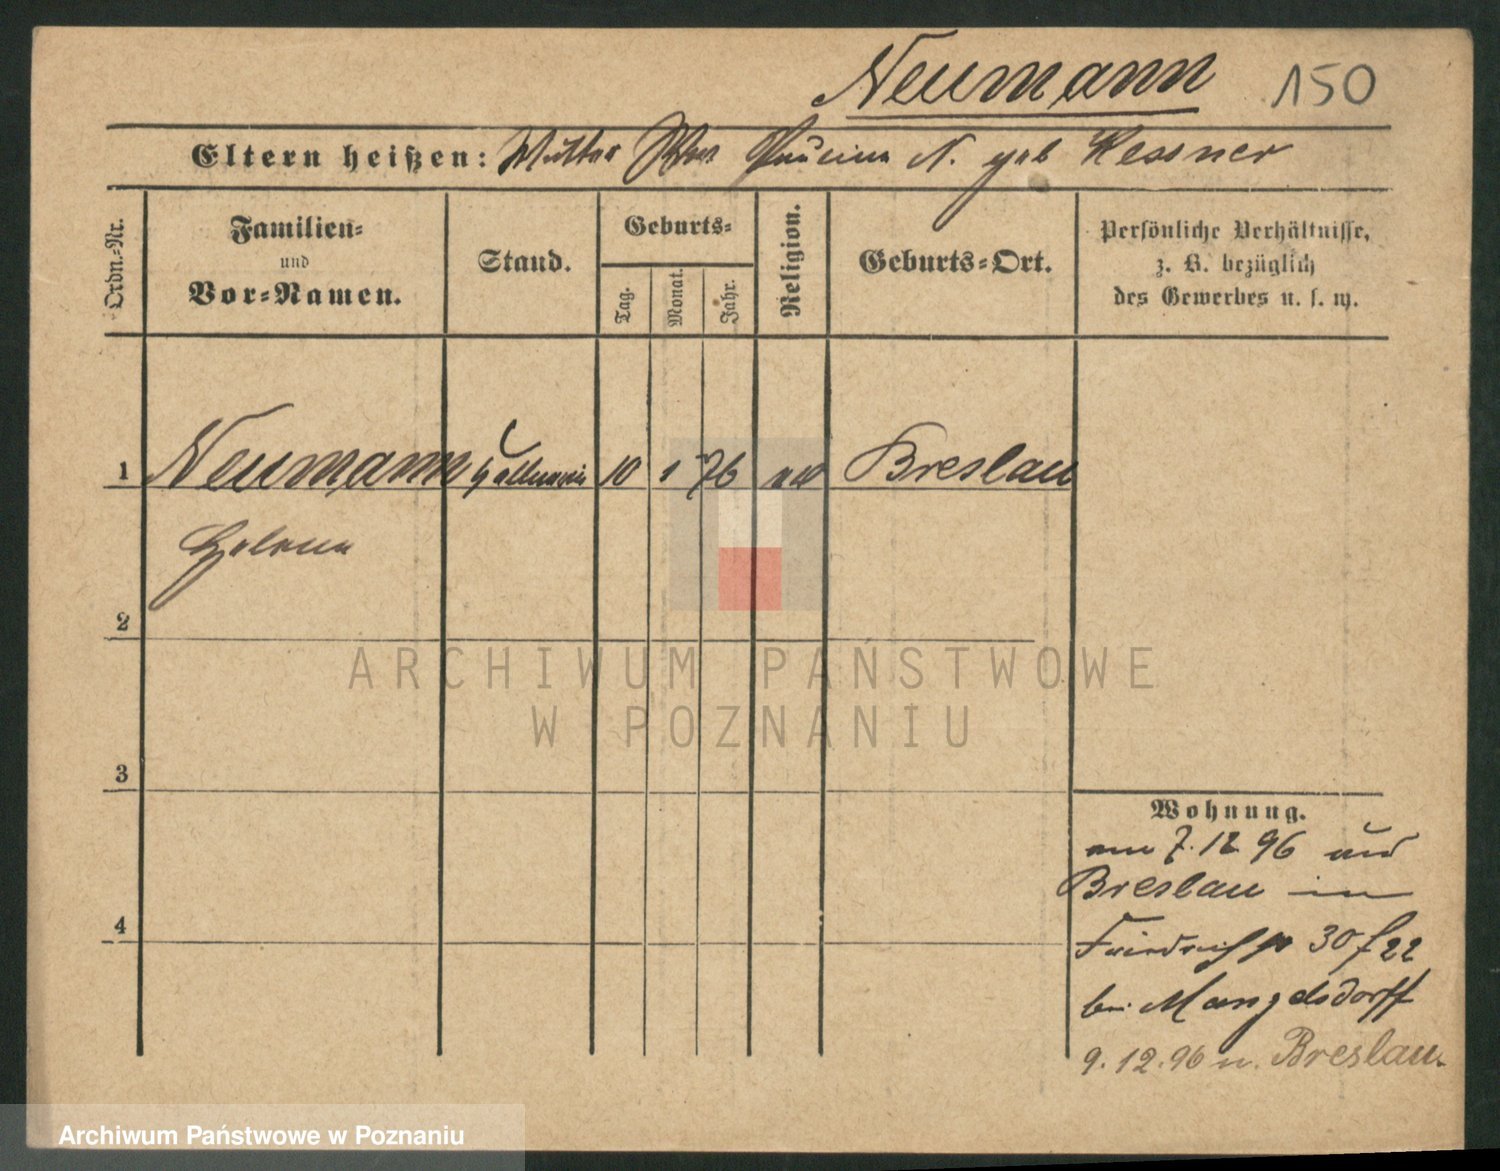 Neumann 150
Eltern heißen: Mutter Wwe Pauline N. geb Kessner
Ordn.-Nr.
Familien-
und
Vor-Namen.
Stand.
Geburts-
Tag.
Monat.
Jahr.
Religion.
Geburts-Ort.
Persönliche Verhältnisse,
z. B. bezüglich
des Gewerbes u. s. w.
1 Neumann 10 1 76 Breslau
Helene
2
3
4
Wohnung.
am 7. 12 96 aus
Breslau in
Friedrichstr 30 / 22
bei Mangelsdorff
9. 12. 96 n. Breslau.
ARCHIWUM PAŃSTWOWE
W POZNANIU
Archiwum Państwowe w Poznaniu